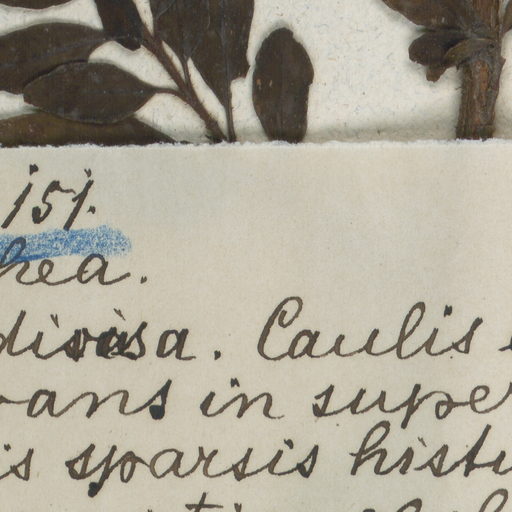 151.
hea.
divisa. Caulis
vans in super
is sparsis hist